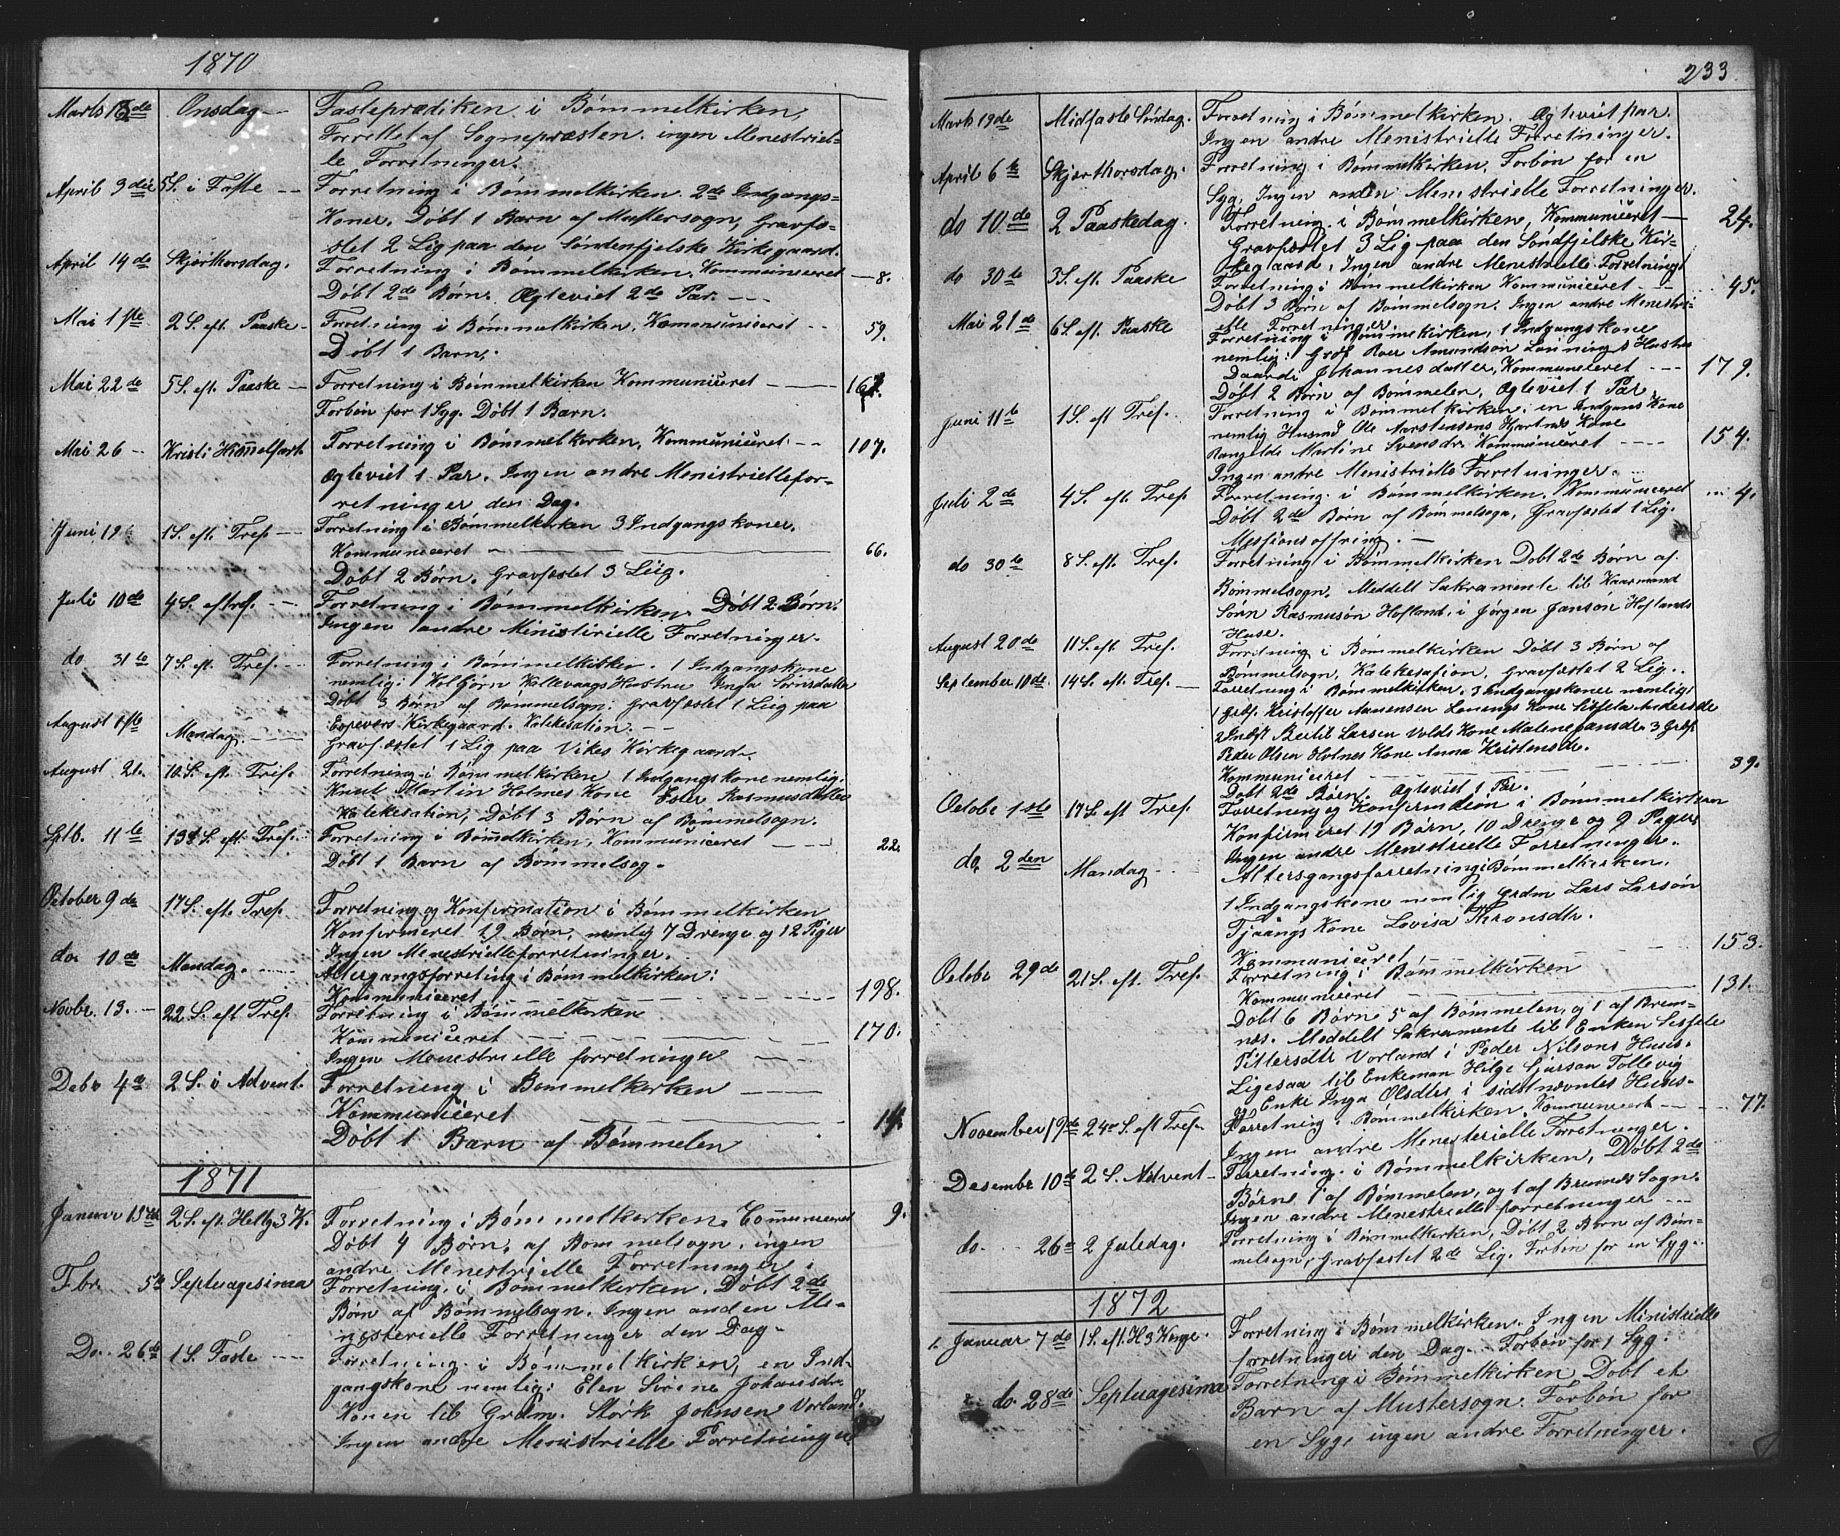 1870
Marts 16de Onsdag Fasteprædiken i Bømmelkirken,
Forrettet af Sognepræsten. ingen Menestriel-
le Forretninger.
April 3die 5S. i Faste Forretning i Bømmelkirken. 2de Indgangs-
Koner. Døbt 1 Barn af Mostersogn, Gravfæ-
stet 2 Lig paa den Søndenfjelske Kirkegaard.
April 14de Skjærthorsdag. Forretning i Bømmelkirken. Kommuniceret 8.
Døbt 2de Børn. Ægteviet 2de Par.
Mai 1ste 2S. eft. Paaske Forretning i Bømmelkirken, Kommuniceret 59.
Døbt 1 Barn.
Mai 22de 5S. eft. Paaske Forretning i Bømmelkirken Kommuniceret
Forbøn for 1 Syg. Døbt 1 Barn.
Mai 26 Kristi Himmelfart Forretning i Bømmelkirken, Kommuniceret 107.
Ægteviet 1 Par. Ingen andre Menistriellefor-
retninger den Dag.
Juni 19 1S. eft. Tref. Forretning i Bømmelkirken 3 Indgangskoner.
Kommuniceret 66.
Døbt 2 Børn. Gravfæstet 3 Liig.
Juli 10de 4S. eft Tref. Forretning i Bømmelkirken. Døbt 2 Børn.
Ingen andre Ministirielle Forretninger.
do 31te 7S. eft. Tref. Forretning i Bømmelkirken. 1 Indgangskone
nemlig: Kolbjørn Kallevaags Hustru Inga Sørnsdatter
Døbt 3 Børn af Bømmelsogn. Gravfæstet 1 Liig paa
Espevers Kirkegaard. Katekesation.
August 1ste Mandag Gravfæstet 1 Lig paa Vikes Kirkegaard.
August 21. 10.S. eft. Tref. Forretning i Bømmelkirken 1 Indgangskone nemlig.
Knut Martin Holmes Kone Ester Rasmusdatter
Katekesation, Døbt 3 Børn af Bømmelsogn.
Sptb. 11te 13de S. eft. Tref. Forretning i Bømmelkirken, Kommuniceret 22.
Døbt 1 Barn af Bømmelsog.
October 9de 17S. eft. Tref. Forretning og Konfirmation i Bømmelkirken
Konfirmeret 19 Børn, nemlig 7 Drenge og 12 Piger
Ingen Menestrielleforretninger.
do. 10de Mandag. Altergangsforretning i Bømmelkirken:
Kommuniceret 198.
Novbr. 13. 22S. eft Tref. Forretning i Bømmelkirken
Kommuniceret 170.
Ingen Menestrielle forretninger
Debr 4de 2S. i Advent. Forretning i Bømmelkirken
Kommuniceret 14.
Døbt 1 Barn af Bømmelen
1871
Januar 15de 2S. eft. Hellg. 3 K. Forretning i Bømmelkirken. Communiceret 9.
Døbt 4 Børn, af Bømmelsogn, ingen
andre Menestrielle Forretninger.
Fbr. 5te Septuagesima Forretning i Bømmelkirken. Døbt 2de
Børn af Bømmelsogn. Ingen anden Me-
nesterielle Forretninger den Dag.
Do. 26de 1S. Faste Forretning i Bømmelkirken, en Ind-
gangskone nemlig: Elen Sirine Johansdr.
Konen til Grdm. Størk Johnsen Vorland.
Ingen andre Menistrielle Forretninger
233
Marts 19de Midfaste Søndag. Forretning i Bømmelkirken. Ægteviet par
Ingen andre Menistrielle Forretninger.
April 6te Skjærthorsdag. Forretning i Bømmelkirken, Forbøn for en
Syg, Ingen anden Menistrielle Forretninger.
do 10de 2 Paaskedag. Forretning i Bømmelkirken, Kommuniceret 24.
Gravfæstet 3 Lig paa den Søndfjelske Kir-
kegaard, Ingen andre Menistrielle Forretning
do 30te 3S. eft. Paaske Forretning i Bømmelkirken Kommuniceret 45.
Døbt 3 Børn af Bømmelsogn. Ingen andre Menestri-
elle Forretninger.
Mai 21de 6S. eft. Paaske Forretning i Bømmelkirken, 1 Indgangskone
nemlig: Grbf. Roer Amundsøn Lønnings Hustru
Daardi Johannesdatter, Kommuniceret 179.
Døbt 2 Børn af Bømmelen, Ægteviet 1 Par.
Juni 11te 1S. eft Tref. Forretning i Bømmelkirken: en Indgans Kone
nemlig Husmd Ole Martensens Hjartnes Kone
Rangilde Martine Svensdr. Kommuniceret 154.
Ingen andre Menistrielle Forretninger.
Juli 2de 4S. eft. Tref. Forretning i Bømmelkirken. Kommuniceret 4.
Døbt 2de Børn af Bømmelsogn, Gravfæsted 1 Lig.
Missionsoffring.
do 30te 8S. eft. Tref. Forretning i Bømmelkirken Døbt 2de Børn af
Bømmelsogn. Meddelt Sakramente til Kaarmand
Sørn Rasmusøn Hofland, i Jørgen Jansøn Hoflands
Huse.
August 20de 11S. eft. Tref. Forretning i Bømmelkirken Døbt 3 Børn af
Bømmelsogn, Katekesation, Gravfæstet 2 Lig.
September 10de. 14S. eft. Tref. Forretning i Bømmelkirken. 3 Indgangskoner nemlig:
1 Grbf. Kristoffer Aamensen Lønnings Kone Sissela Andersdr
2 Indst Bertil Larsen Volds Kone Malene Jansdr. 3 Grbf.
Peder Olsen Holmes Kone Anna Kristensdr.
Kommuniceret 39.
Døbt 2de Børn. Ægteviet 1 Par.
Octobr 1ste 17S. eft Tref. Forretning og Konfirmation i Bømmelkirken
Konfirmeret 19 Børn, 10 Drenge og 9 Piger
Ingen andre Menistrielle Forretninger.
do. 2den Mandag Altergangsforretning i Bømmelkirken.
1 Indgangskone nemlig Grdm Lars Larsøn
Tjaangs Kone Lovisa Thronsdtr.
Kommuniceret 153.
Octobr 29de 21S. eft. Tref. Forretning i Bømmelkirken
Kommuniceret 131.
Døbt 6 Børn 5 af Bømmelen, og 1 af Brem-
nes. Meddelt Sakramente til Enken Sissele
Pittersdtr Vorland i Peder Nilsons Huus.
Ligesaa til Enkeman Helge Sjurson Tollevig
og Enke Inga Olsdtr i sidstnævntes Huus.
November 19de 24de S. eft Tref. Forretning i Bømmelkirken, Kommuniceret 77.
Ingen andre Menesterielle Forretninger.
Desembr 10de 2S. Advent Forretning i Bømmelkirken, Døbt 2de
Børn 1 af Bømmelen, og 1 af Bremnes Sogn.
Ingen andre Menestrielle forretninger
do. 26de 2 Juledag. Forretning i Bømmelkirken, Døbt 2 Børn af Bøm-
melsogn, Gravfæstet 2de Lig. Forbøn for en Syg.
1872
1. Januar 7de 1S. eft. H 3 Konge. Forretning i Bømmelkirken. Ingen Ministrielle
forretninger den Dag. Forbøn for 1 Syg.
2. do. 28de Septuagesima Forretning i Bømmelkirken, Døbt et
Barn af Mustersogn. Forbøn for
en Syg, ingen andre Forretninger.